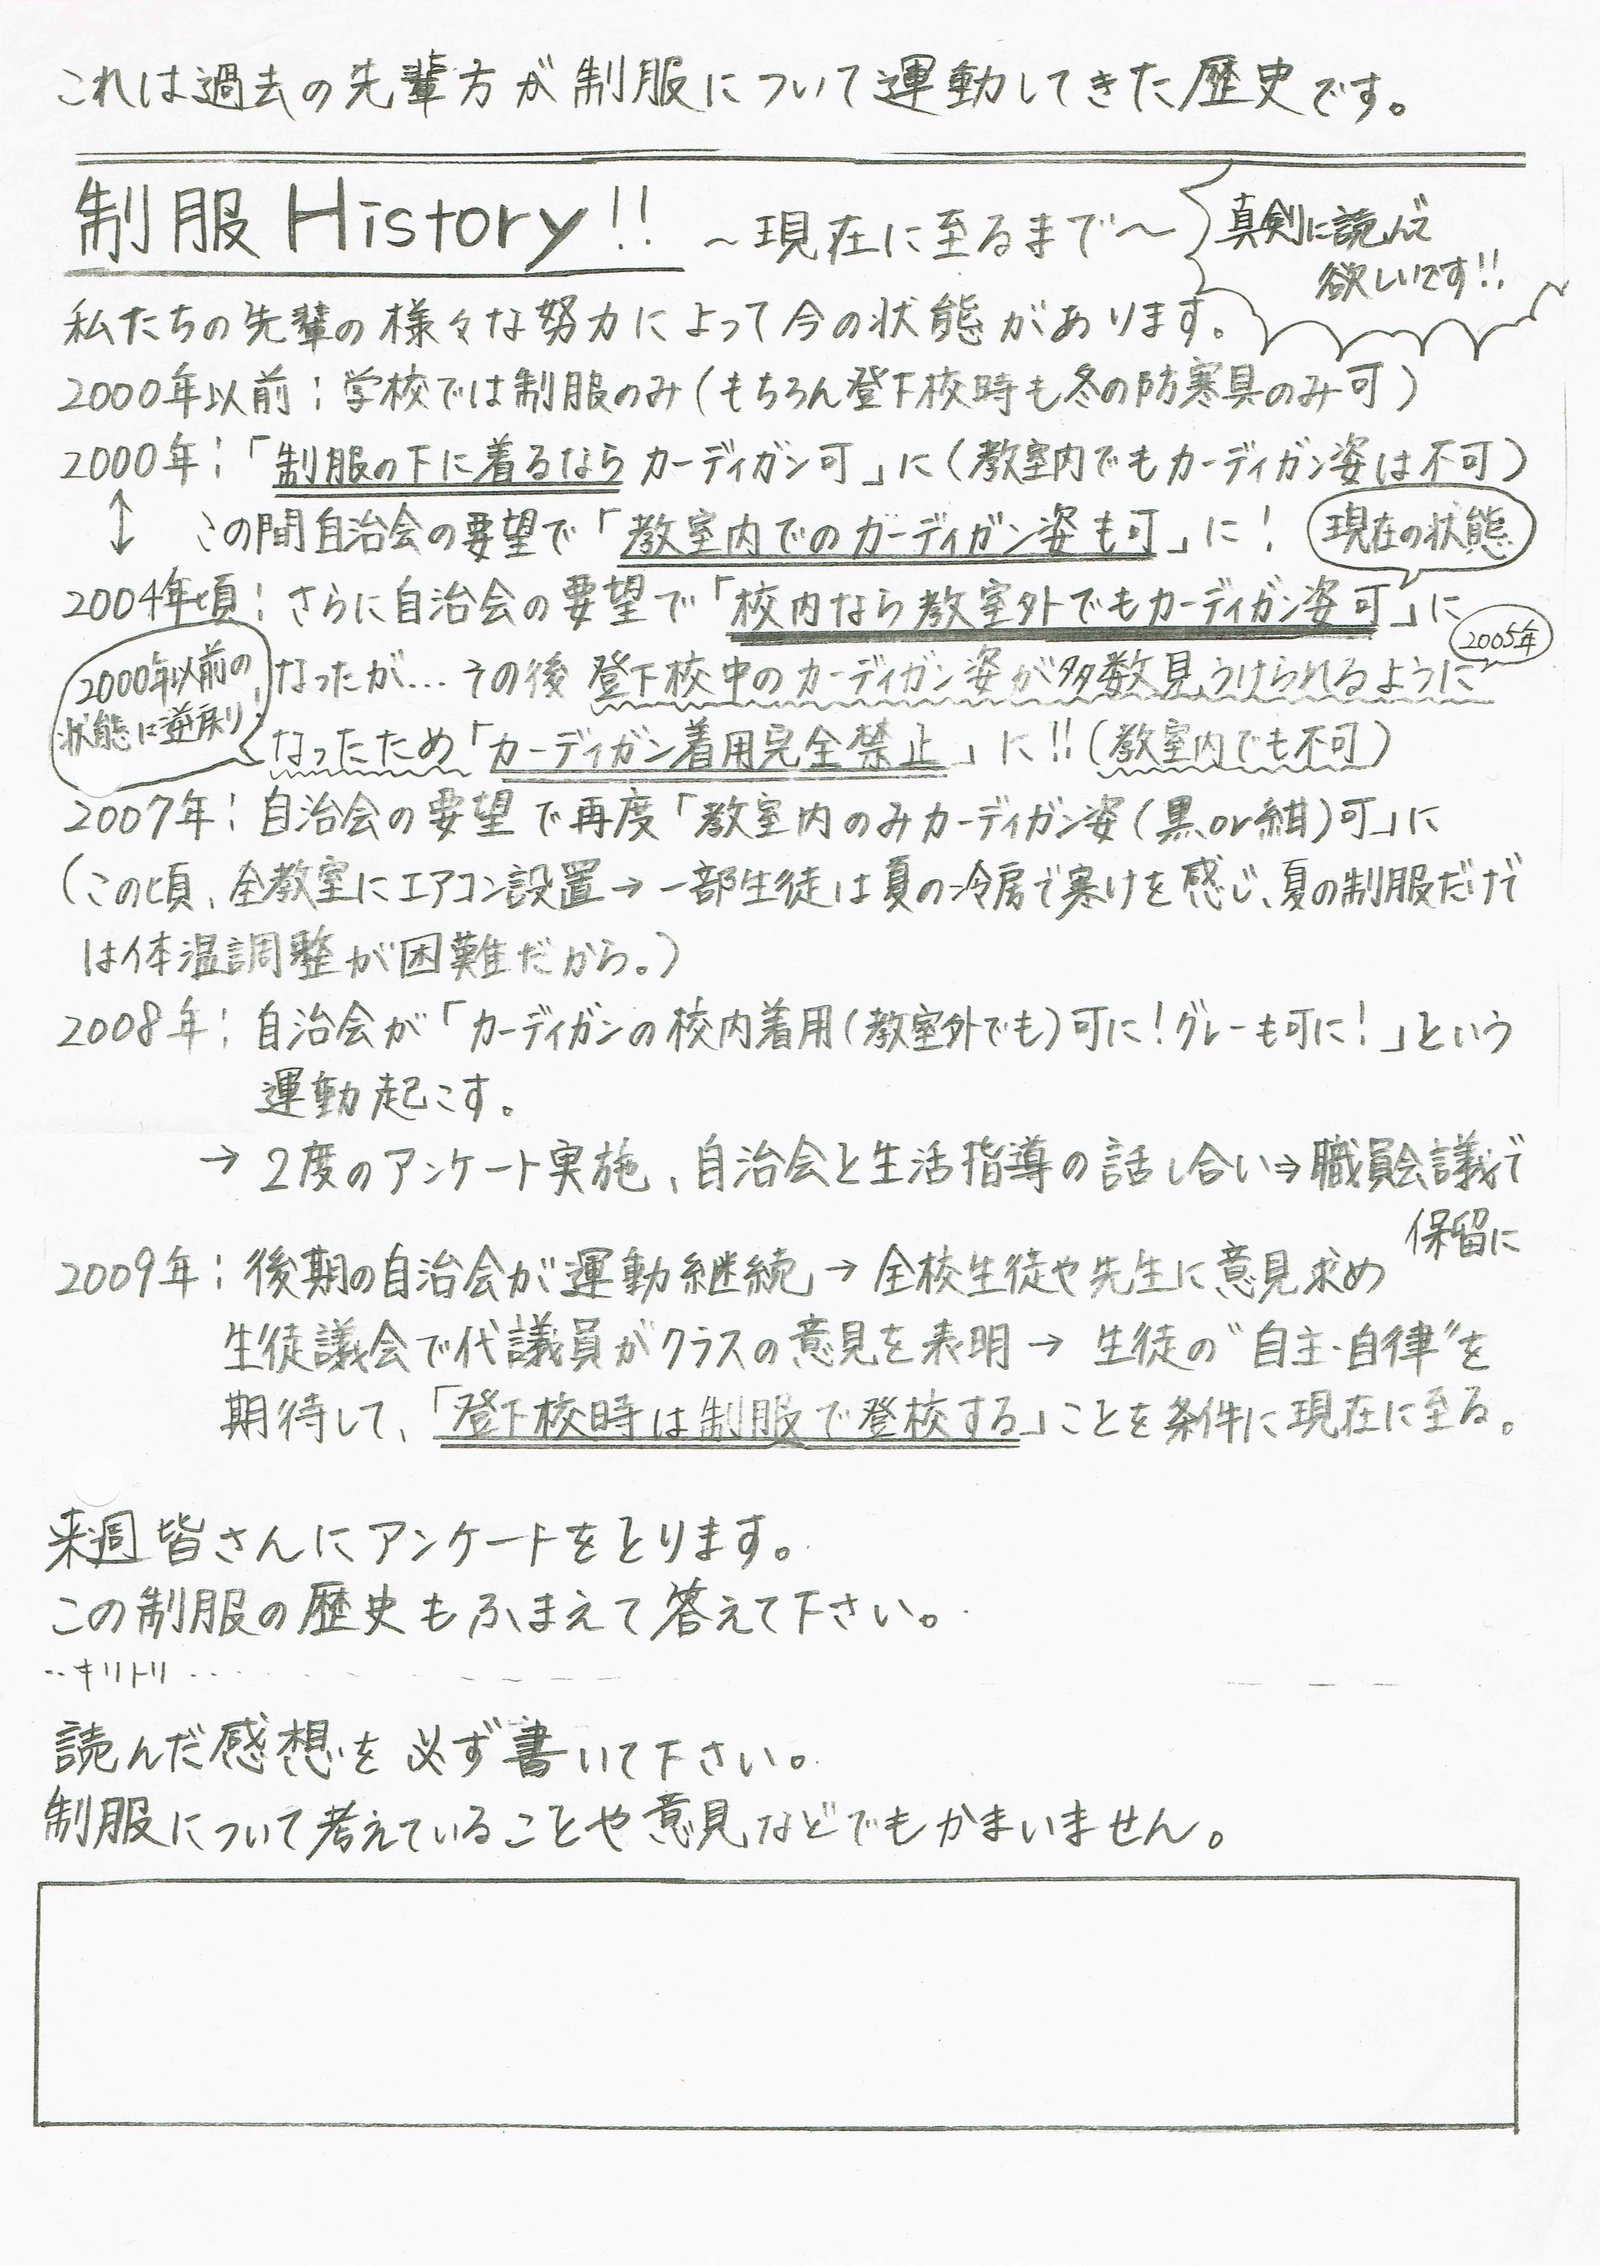 これは過去の先輩方が制服について運動してきた歴史です。
制服History!! ～現在に至るまで～
真剣に読んで
欲しいです!!
私たちの先輩の様々な努力によって今の状態があります。
2000年以前：学校では制服のみ（もちろん登下校時も冬の防寒具のみ可）
2000年：「制服の下に着るならカーディガン可」に（教室内でもカーディガン姿は不可）
↕ この間自治会の要望で「教室内でのカーディガン姿も可」に！
現在の状態
2004年頃：さらに自治会の要望で「校内なら教室外でもカーディガン姿可」に
2005年
なったが… その後 登下校中のカーディガン姿が多数見うけられるように
2000年以前の
状態に逆戻り！
なったため「カーディガン着用完全禁止」に!!（教室内でも不可）
2007年：自治会の要望で再度「教室内のみカーディガン姿（黒or紺）可」に
（この頃、全教室にエアコン設置→一部生徒は夏の冷房で寒けを感じ、夏の制服だけで
は体温調整が困難だから。）
2008年：自治会が「カーディガンの校内着用（教室外でも）可に！グレーも可に！」という
運動起こす。
→ 2度のアンケート実施、自治会と生活指導の話し合い⇒職員会議で
保留に
2009年：後期の自治会が運動継続→全校生徒や先生に意見求め
生徒議会で代議員がクラスの意見を表明→生徒の“自主・自律”を
期待して、「登下校時は制服で登校する」ことを条件に現在に至る。
来週皆さんにアンケートをとります。
この制服の歴史もふまえて答えて下さい。
‥キリトリ‥
読んだ感想を必ず書いて下さい。
制服について考えていることや意見などでもかまいません。